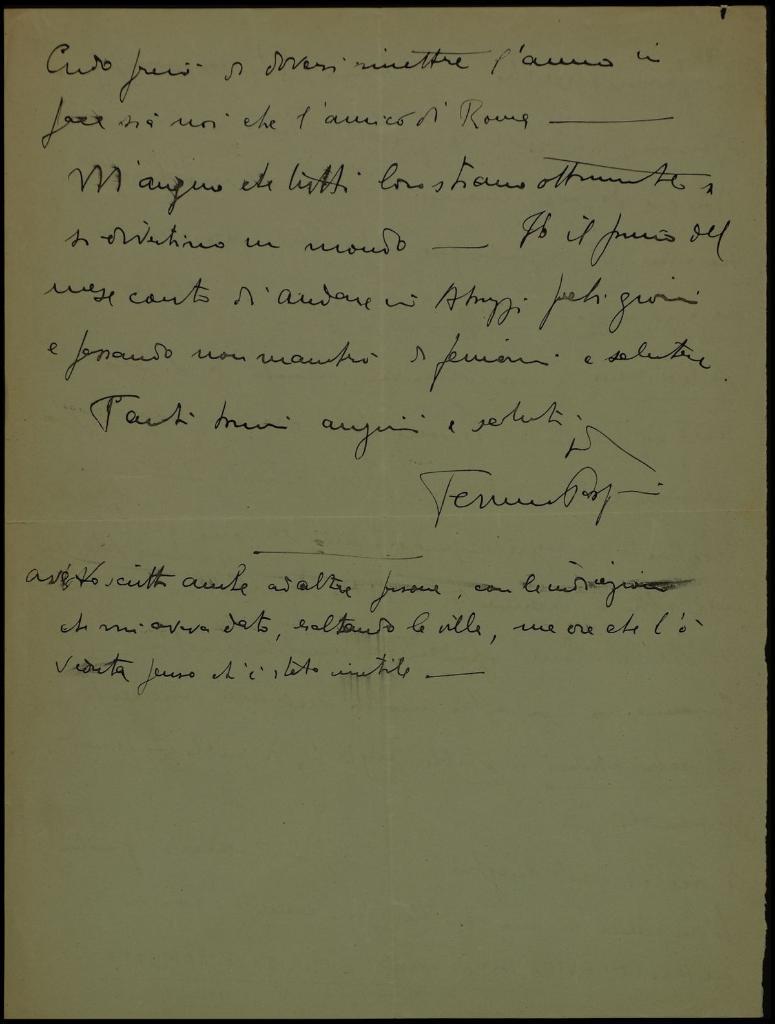 Credo però di doversi rimettere l'anno in
pace sia noi che l'amico di Roma —
M'auguro che tutti loro stiano ottimamente e
si divertino un mondo — il primo del
mese conto di andare in Abruzzi giorni
e passando non mancherò di fermarmi e salutare.
Tanti buoni auguri e saluti
scritto anche ad altre persone, con le indicazioni
che mi aveva dato, esaltando la villa, ma ora che l'ò
veduta penso ch'è stato inutile. —